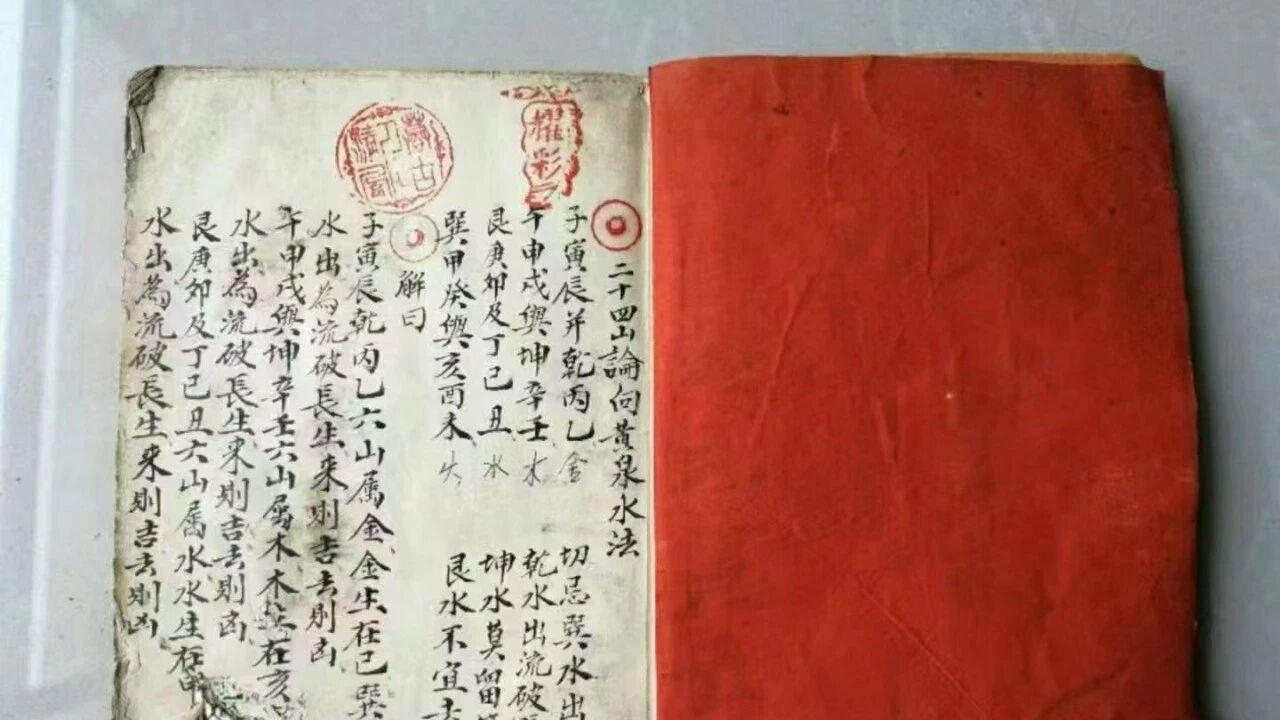 二十四山論向黃泉水法
子寅辰并乾丙乙金 切忌巽水出
午申戌與坤辛壬木 乾水出流破
艮庚卯及丁巳丑水 坤水莫留
巽甲癸與亥酉未火 艮水不宜去
解曰
子寅辰乾丙乙六山属金金生在巳巽
水出為流破長生來則吉去則凶
午申戌與坤辛壬六山属木木生在亥
水出為流破長生來則吉去則凶
艮庚卯及丁巳丑六山属水水生在申
水出為流破長生來則吉去則凶
耀彩